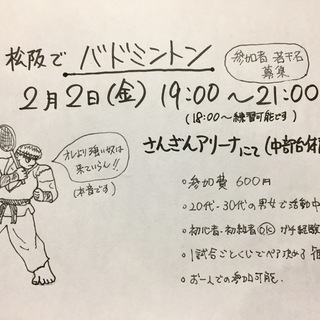 松阪で バドミントン
参加者 若干名
募集
2月2日(金) 19:00〜21:00
(18:00〜練習可能です)
さんぎんアリーナにて(中部台体育
オレより強い奴は
来ていらん!!
(本音です)
。参加費 600円
。20代・30代の男女で活動中
。初心者・初級者OK ガチ経験
。1試合ごとくじでペア決める
。お一人での参加可能.